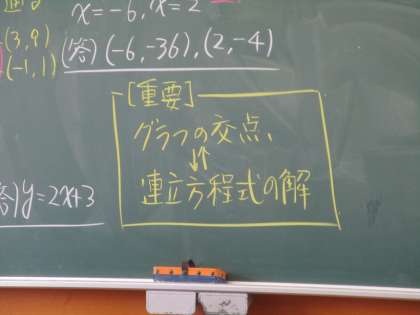 x=-6, x=2
(3,9)
(-1,1)
(答)(-6,-36),(2,-4)
[重要]
グラフの交点、
↓↑
連立方程式の解
答)y=2x+3